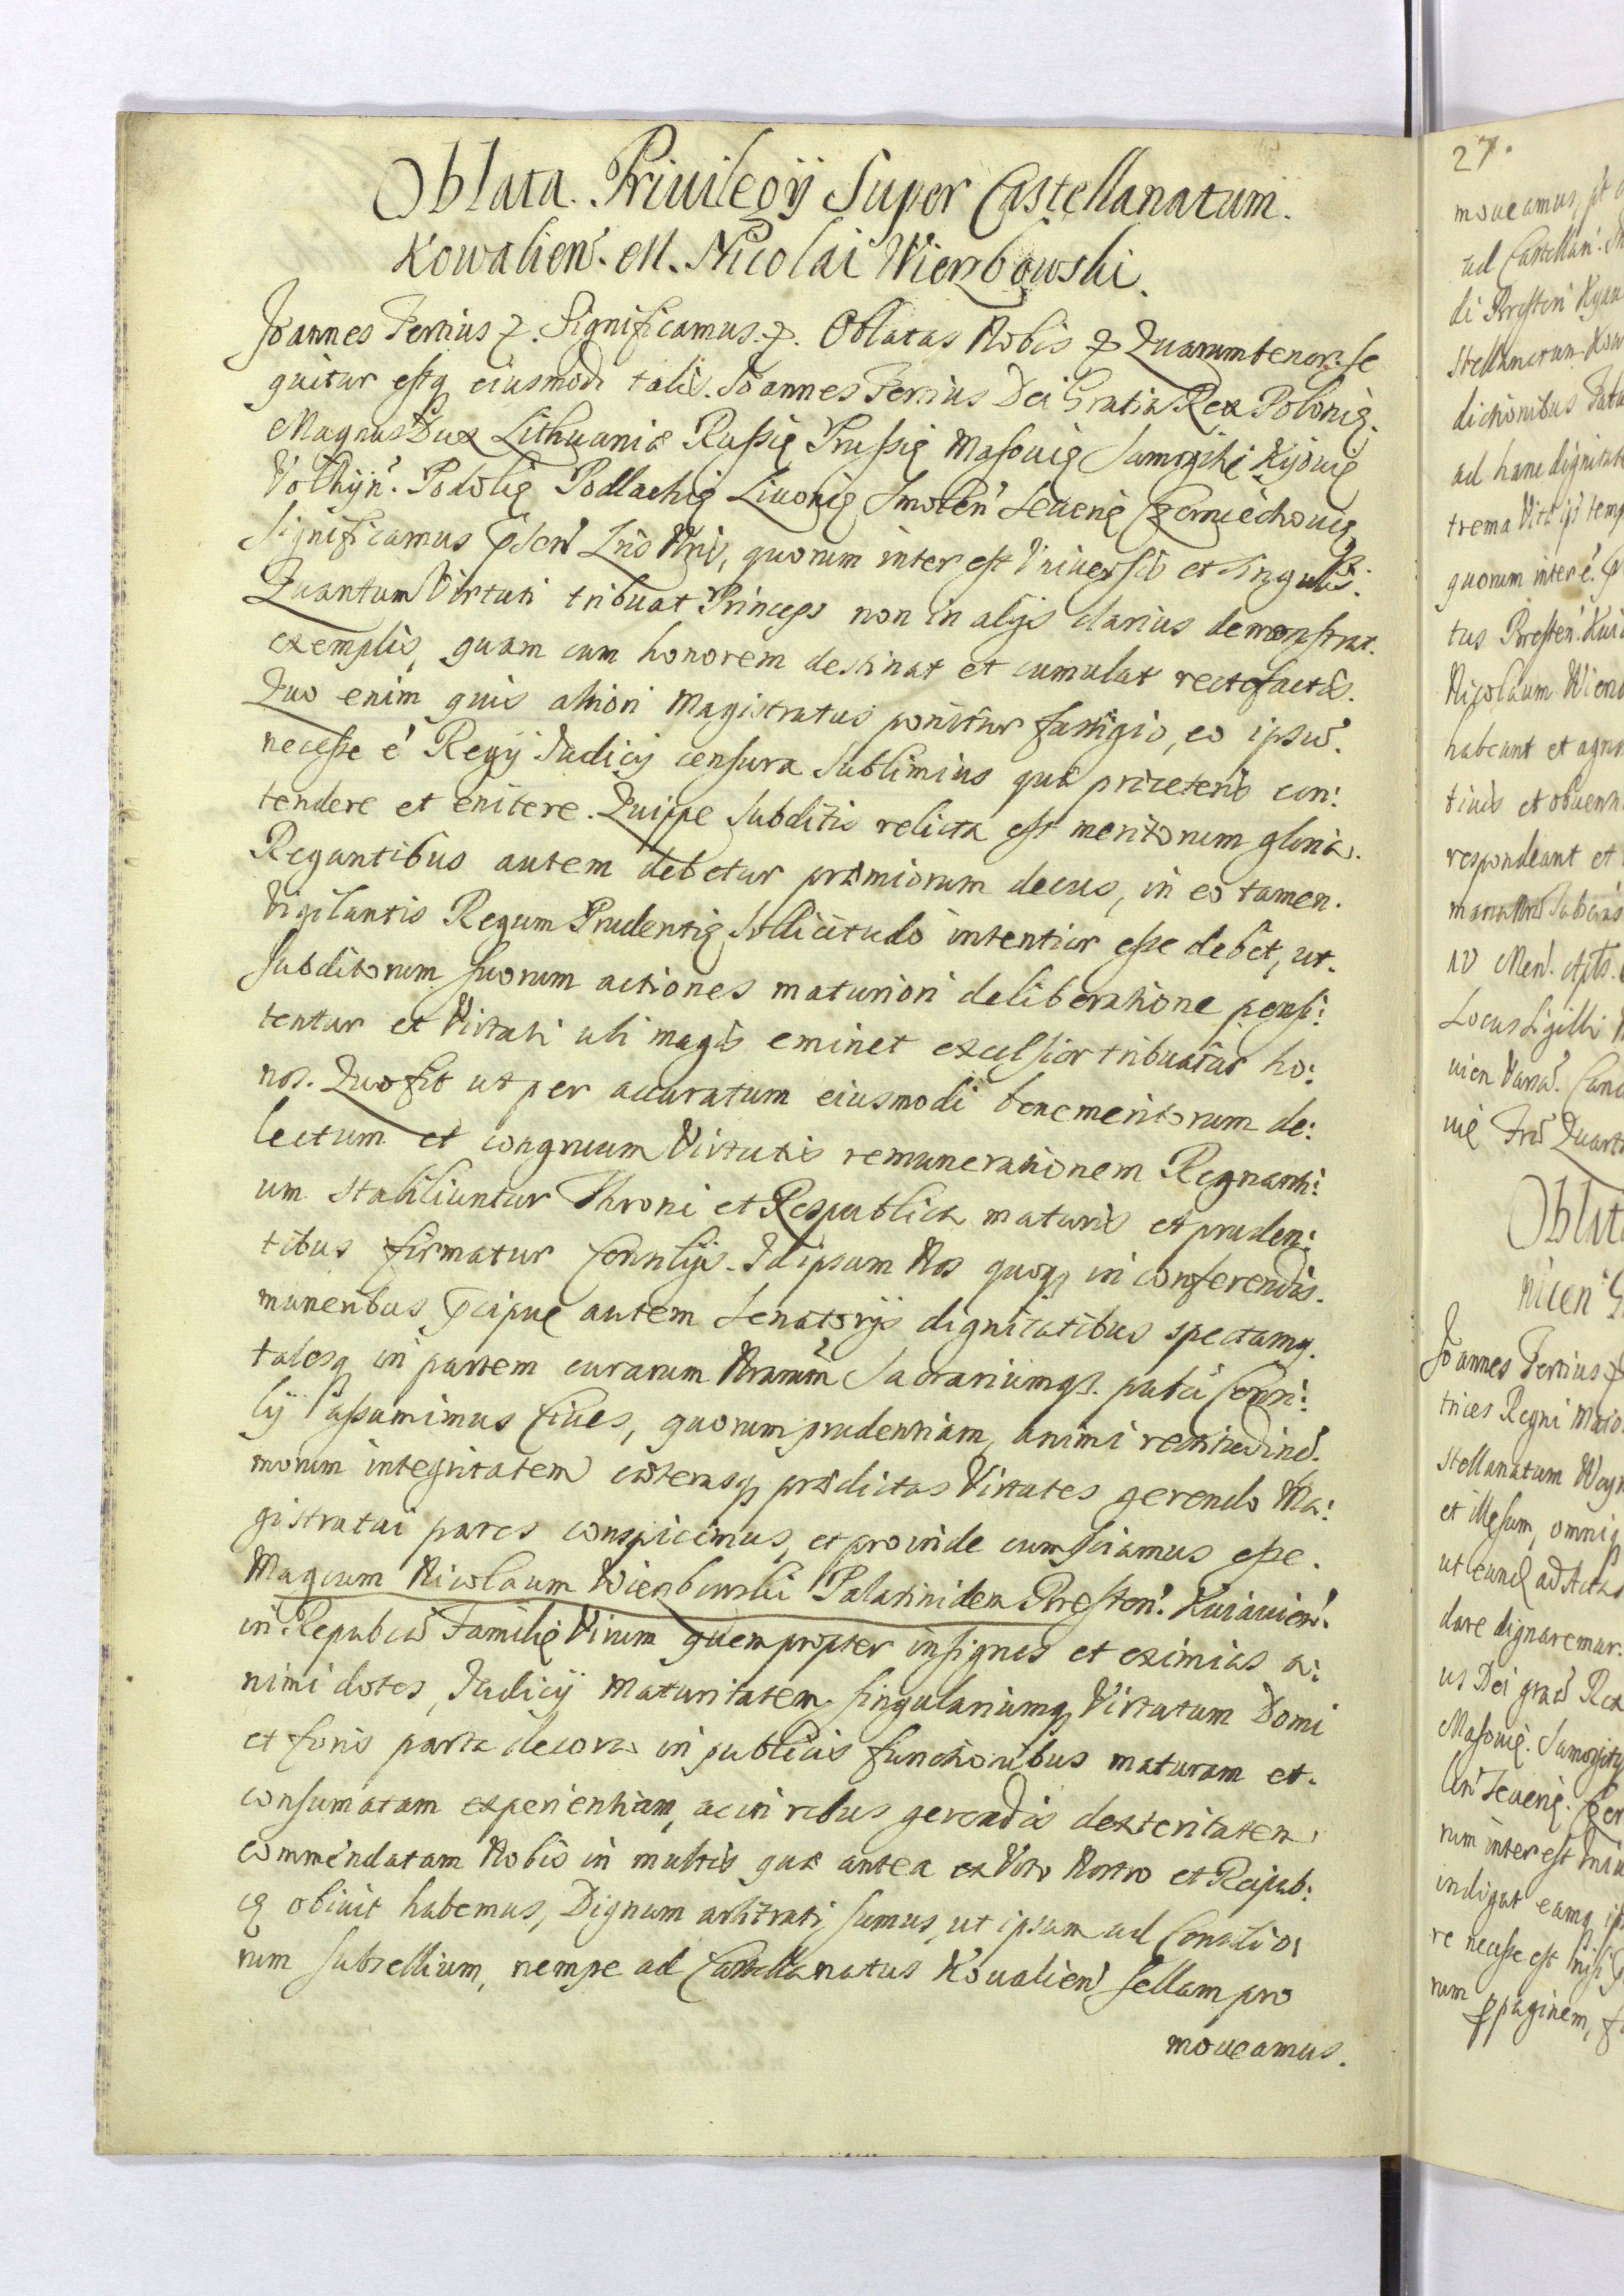 Oblata Priuilegÿ Super Castellanatum.
Kowalien. M. Nicolai Wierzbowski.
Joannes Tertius &. Significamus. &. Oblatas Nobis & Quarum tenor se
quitur estq eiusmodi talis. Joannes Tertius Dei Gratia Rex Polonię.
Magnus Dux Lithuaniæ Rußię Prußię Masouię Samogitię Kijouię
Volhÿn. Podolię Podlachię Liuonię Smolen Seuerię Czerniechouięq
Significamus Psen Lris Nris, quorum interest Vniuersis et Singulis.
Quantum Virtuti tribuat Princeps non in alijs clarius demonstrat.
exemplis, quam cum honorem destinat et cumulat recte factis.
Quo enim quis altiori Magistratus ponitur fastigio, eo ipsum.
necesse e Regÿ Judicij censura sublimius qua præceteris con:
tendere et enitere. Quippe Subditis relicta est meritorum gloria.
Regnantibus autem debetur præmiorum decus, in eo tamen.
Vigilantis Regum Prudentię Sollicitudo intentior esse debet, ut.
Subditorum suorum actiones maturiori deliberatione pensi:
tentur et Virtuti ubi magis eminet excelsior tribuatur ho:
nos. Quo fit ut per accuratum eiusmodi benemeritorum de:
lectum et congruum Virtutis remunerationem Regnanti:
um stabiliuntur Throni et Respublica maturis et pruden:
tibus firmatur Consilijs. Id ipsum Nos quoq in conferendis.
muneribus Pcipue autem Senatorijs dignitatibus spectamq.
talesq in partem curarum Nrarum Sacrariumq. publi Consi:
lÿ assumimus Ciues, quorum prudentiam, animi rectitudine.
morum integritatem cæterasq prædictas Virtutes gerendo Ma:
gistratui pares conspicimus, et proinde cum sciamus esse.
Magcum Nicolaum Wierzbowski Palatinidem Bresten. Kuiauien.
in Repubca Familię Virum quem propter insignes et eximias a:
nimi dotes, Judicÿ Maturitatem, singulariumq Virtutum Domi
et foris parta decora in publicis functionibus maturam et.
consumatam experientiam, ac in rebus gerendis dexteritatem
commendatam Nobis in multis quæ antea ex Voto Nostro et Reipub:
cę obiuit habemus, Dignum arbitrati sumus, ut ipsum ad Consilio:
rum subsellium, nempe ad Castellanatus Koualien sellam pro
moueamus.
27.
moueamus,
ad Castellan.
di Bresten Kuiau
stellanatum Kow
dictionibus
ad hanc dignitat
trema Vitæ ipi temp
quorum inter e.
tus Bresten. Kui
Nicolaum Wierz
habeant et agn
tiuis et obuent
respondeant et
manu Nra Subscri
10 Men. Aplis.
Locus Sigilli
uien Varsa. Canc
uię Trio Quarta
Oblat
nicen
Joannes Tertius &
trices Regni Maio
stellanatum Wogn
et illesum, omniq
ut eand ad Acta
dare dignaremur.
us Dei gra Rex
Masouię. Samogitię
len Seuerię. Czer
rum interest Vniu
indigat eamq ip
re necesse est nisi
rum ppaginem,